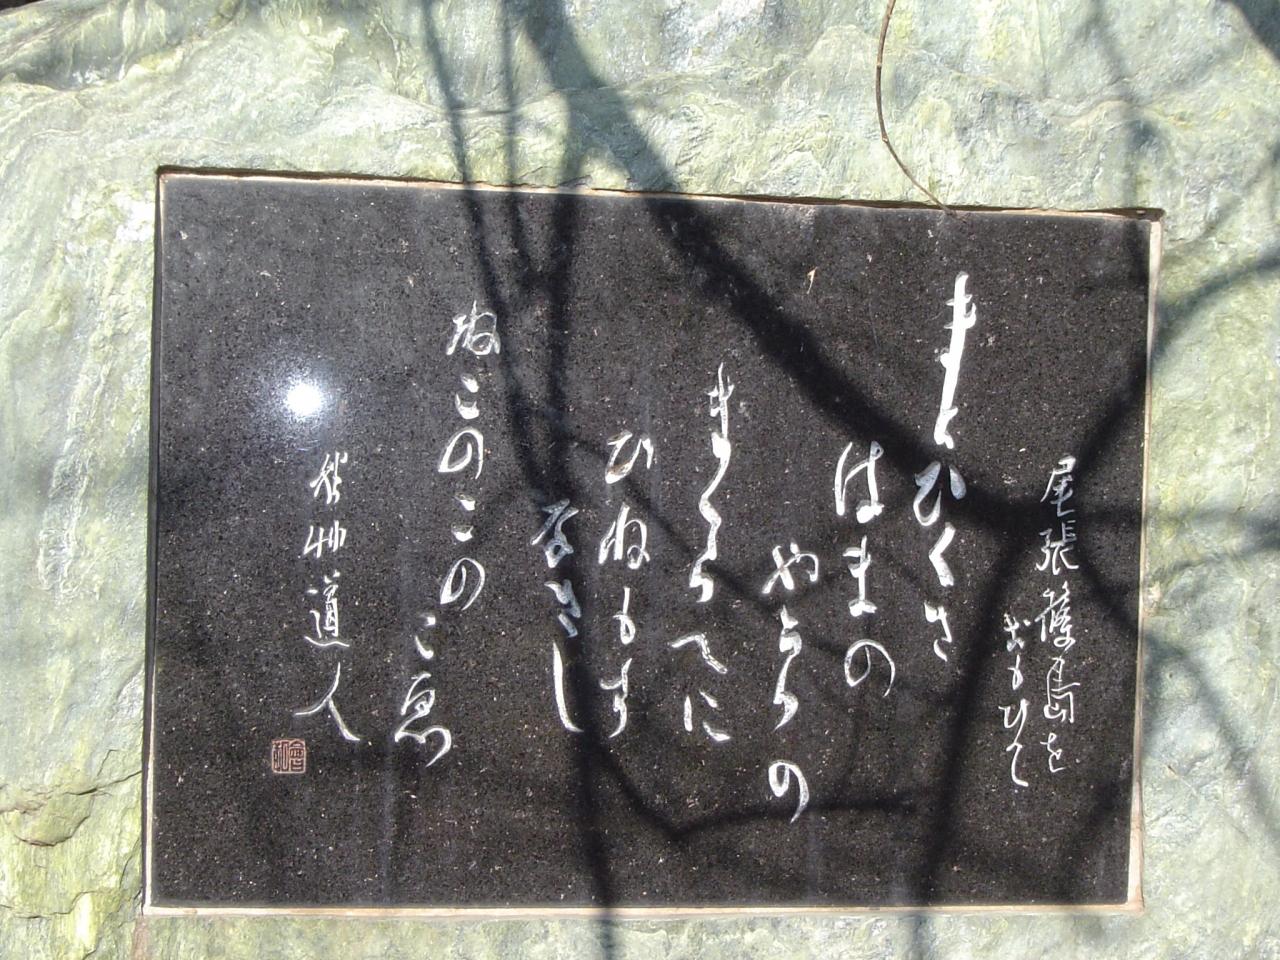 尾張篠島を
おもひて
まとひくき
はまの
やからの
まくらへに
ひねもす
なきし
ねこのこの
こゑ
秋艸道人